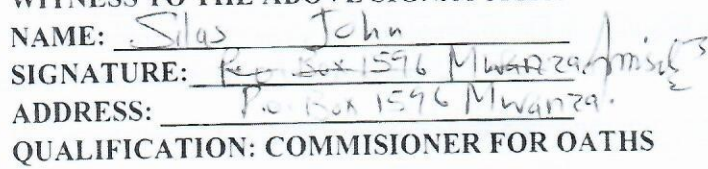 WITNESS TO THE ABOVE
NAME: Silas John
SIGNATURE: P.o Box 1596 Mwanza
ADDRESS: P.o. Box 1596 Mwanza.
QUALIFICATION: COMMISIONER FOR OATHS